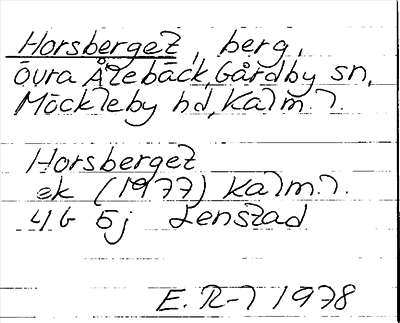 Horsberget, berg,
övra Ålebäck, Gårdby sn,
Möckleby hd, Kalm. l.
Horsberget
ek (1977) Kalm. l.
4G 5j Lenstad
E. R-l 1978